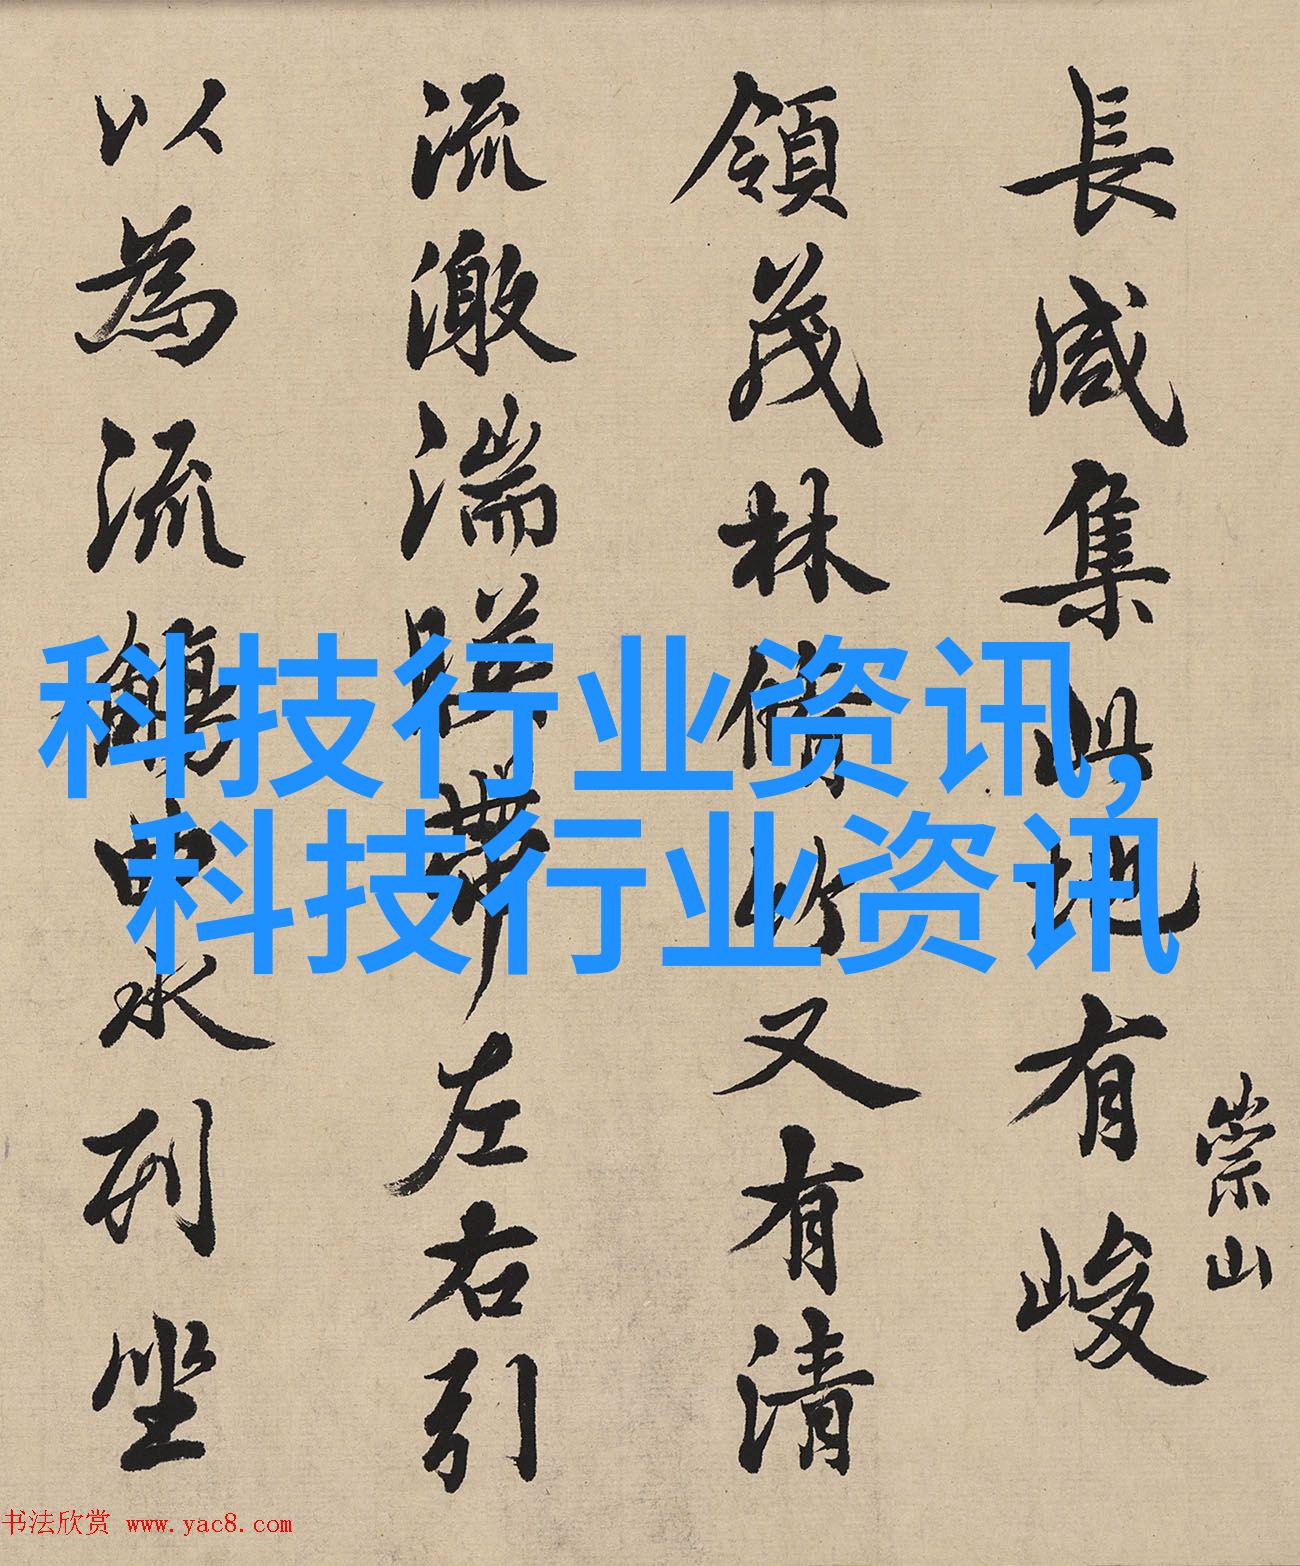 長咸集此地有峻
崇山
領茂林脩竹又有清
流激湍暎帶左右引
以為流觴曲水列坐
科技行业资讯,
科技行业资讯
书法欣赏 www.yac8.com